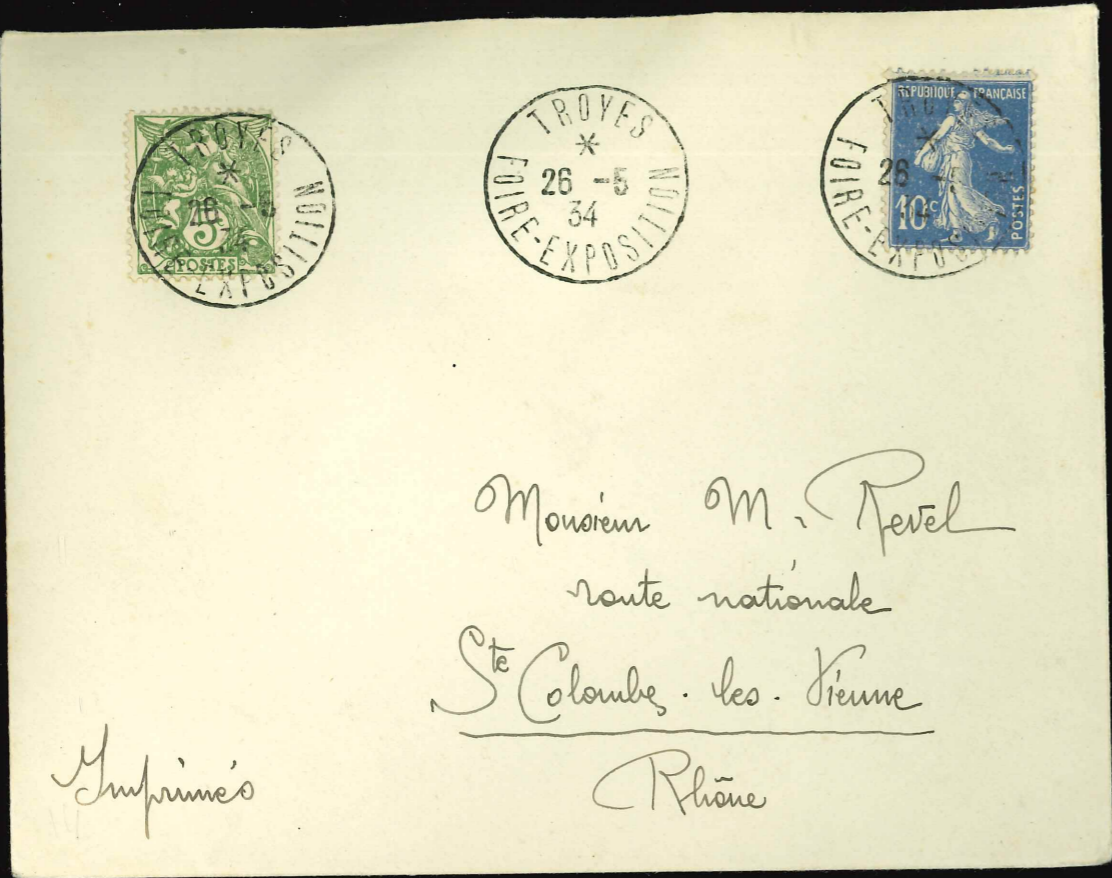 TROYES
*
26 -5
34
FOIRE-EXPOSITION
5
POSTES
TROYES
*
26 -5
34
FOIRE-EXPOSITION
REPUBLIQUE FRANÇAISE
TRO
*
26
34
FOIRE-EXPOSI
10c
POSTES
Monsieur M. Revel
route nationale
Ste Colombe. les. Vienne
Rhône
Imprimés